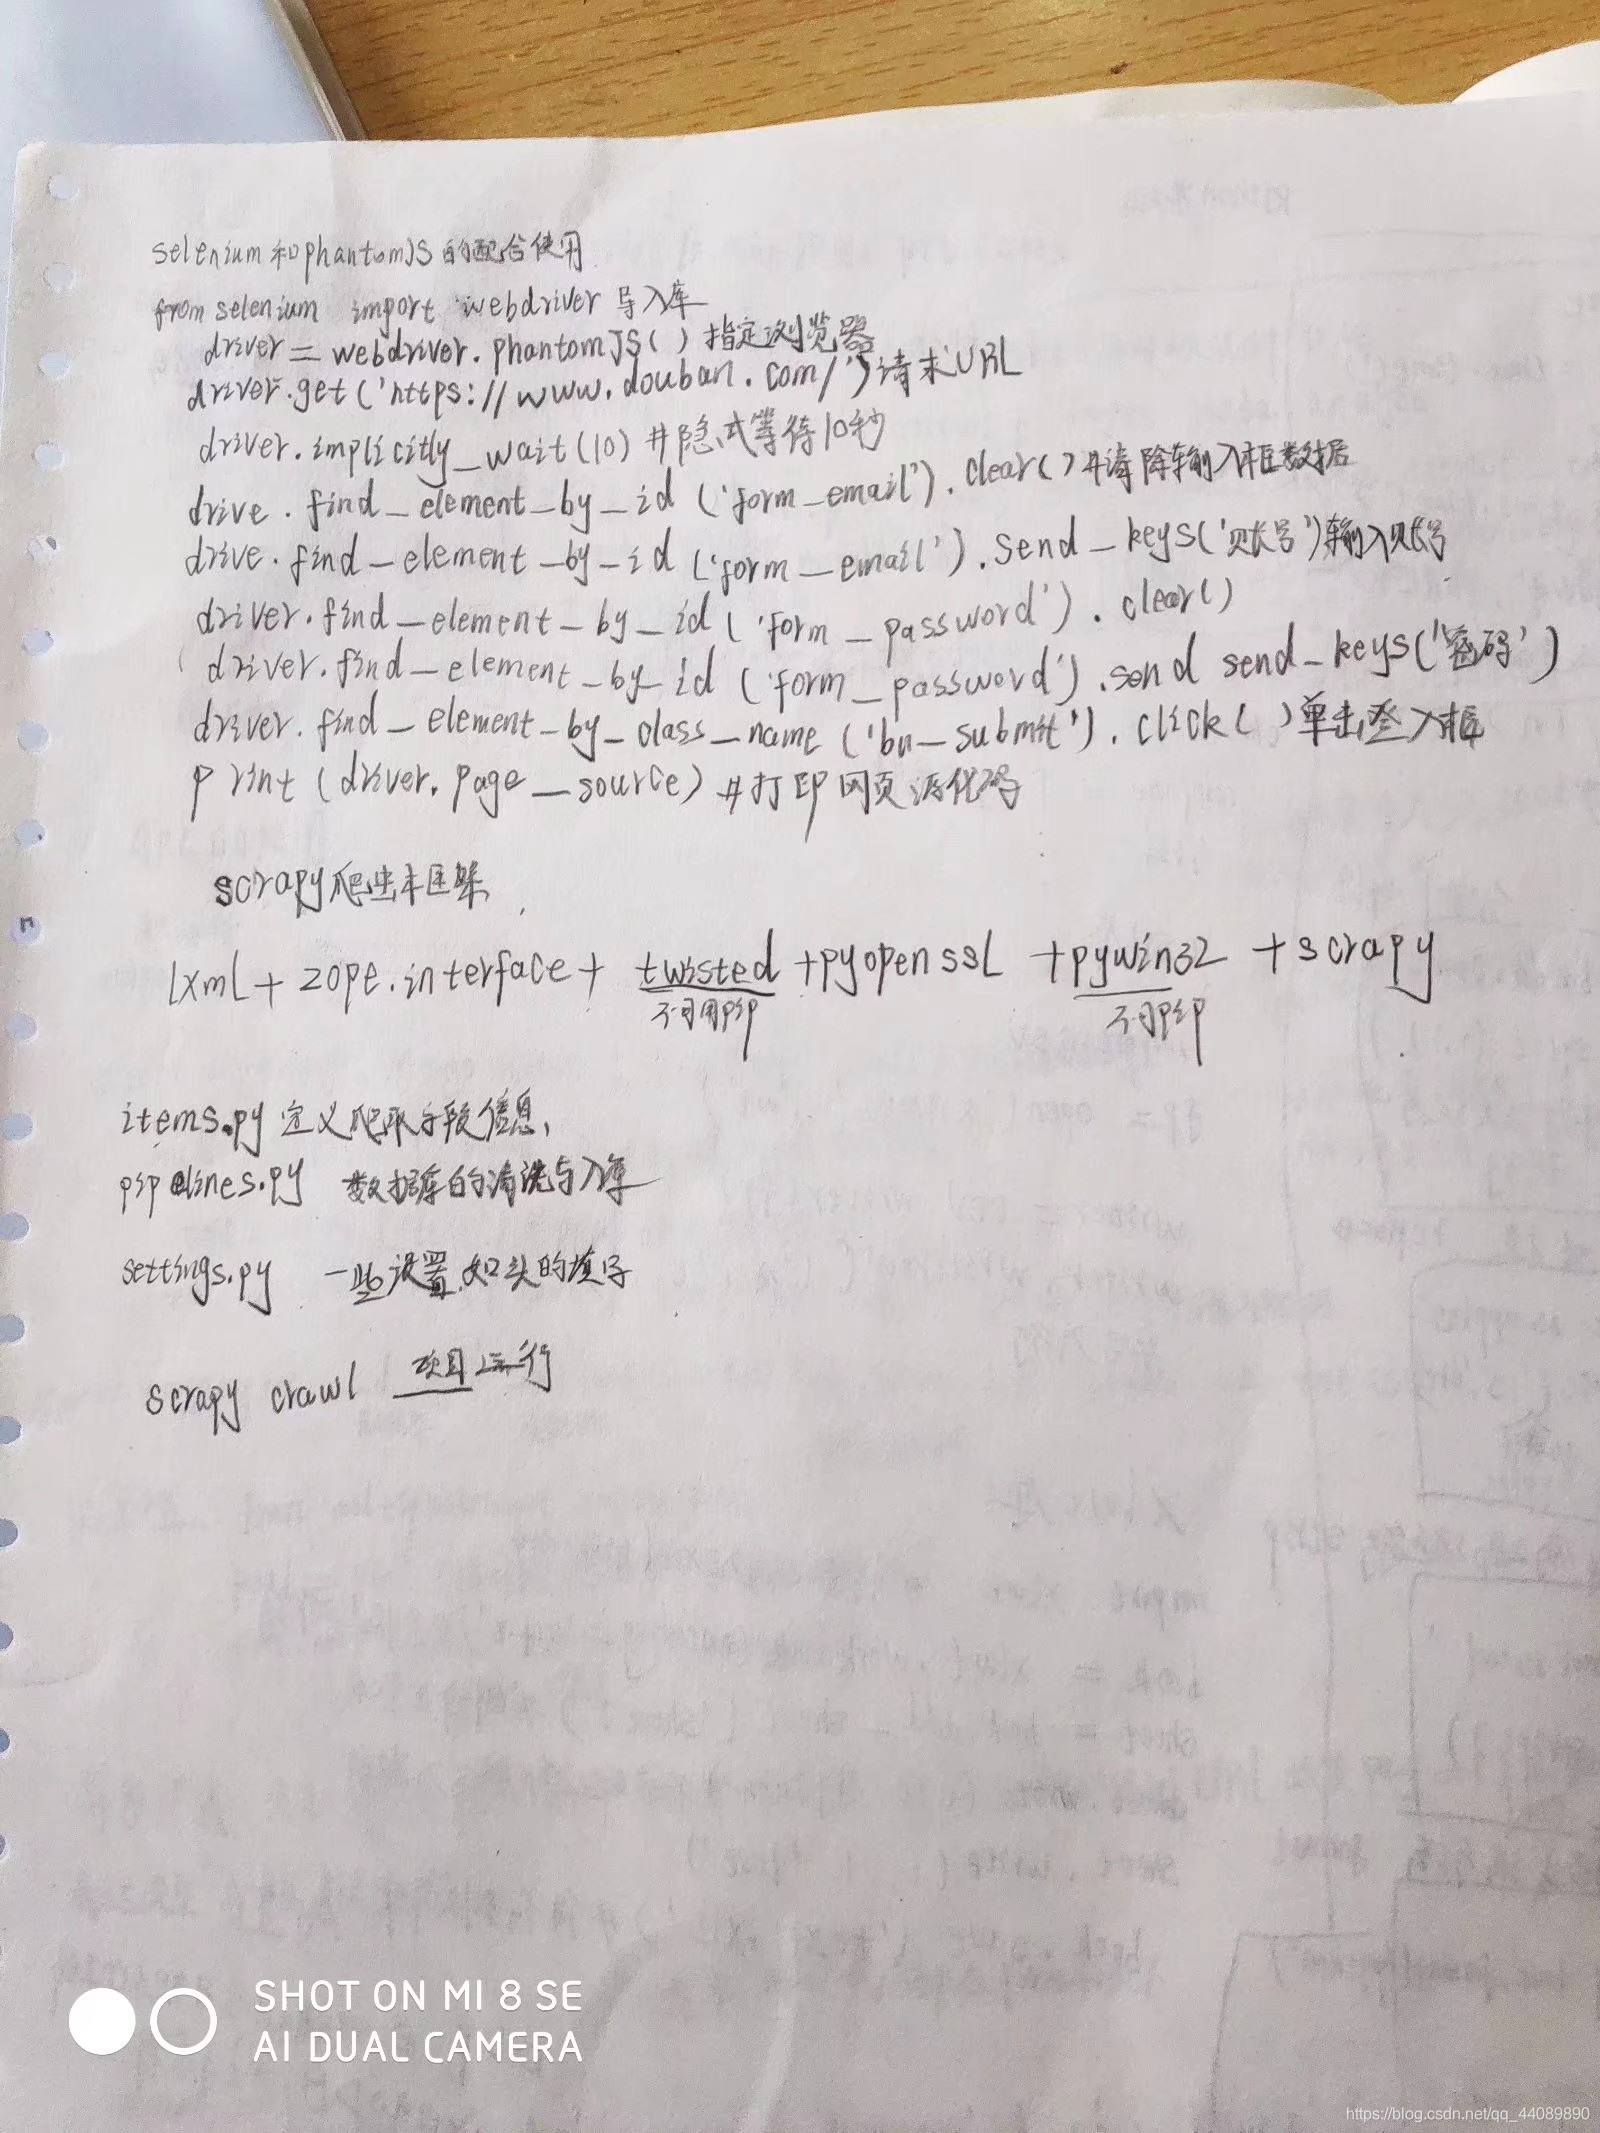 selenium和phantomJS的配合使用
from selenium import webdriver 导入库
driver = webdriver.phantomJS() 指定浏览器
driver.get('https://www.douban.com/') 请求URL
driver.implicitly_wait(10) #隐式等待10秒
drive.find_element_by_id('form_email').clear() #清除输入框数据
drive.find_element_by_id('form_email').send_keys('账号')输入账号
driver.find_element_by_id('form_password').clear()
driver.find_element_by_id('form_password').send send_keys('密码')
driver.find_element_by_class_name('bn_submit').click()单击登入框
print(driver.page_source) #打印网页源代码
scrapy爬虫框架
lxml + zope.interface + twisted + pyopenssl + pywin32 + scrapy
不可用pip 不可pip
items.py 定义爬取字段信息,
pipelines.py 数据库的清洗与入库
settings.py 一些设置,如头的填写
scrapy crawl 项目 运行
SHOT ON MI 8 SE
AI DUAL CAMERA
https://blog.csdn.net/qq_44089890